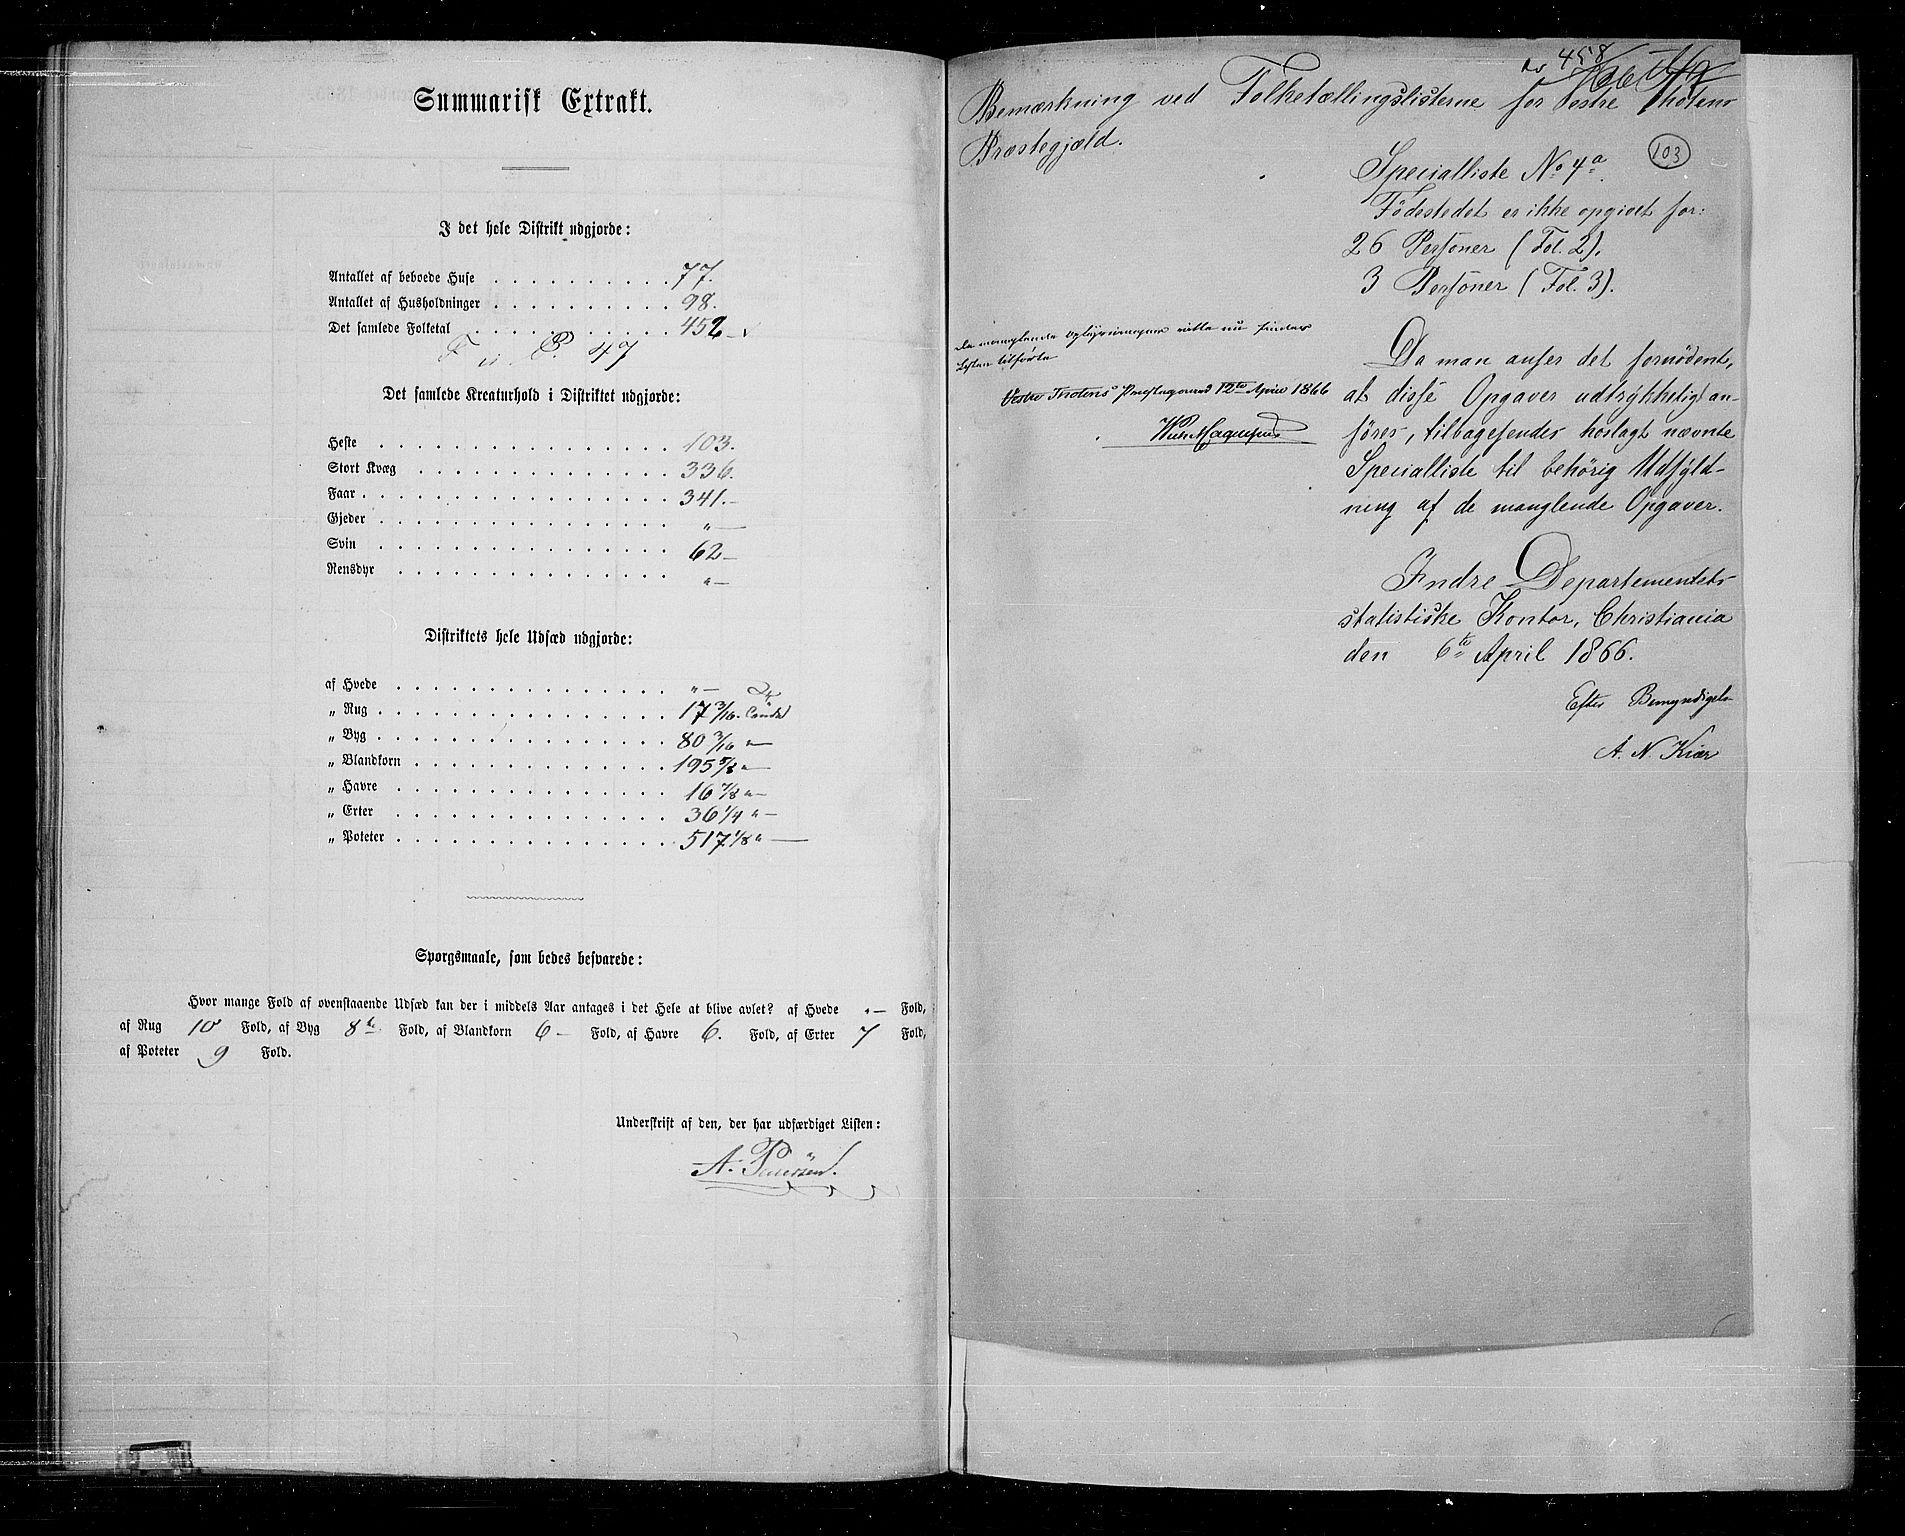 Summarisk Extrakt.
I det hele Distrikt udgjorde:
Antallet af beboede Huse . . . . . . . . . . 77.
Antallet af Husholdninger . . . . . . . . . . 98.
Det samlede Folketal . . . . . . . . . . . 452
47
Det samlede Kreaturhold i Distriktet udgjorde:
Heste . . . . . . . . . . . . . . . . 103.
Stort Kvæg . . . . . . . . . . . . . . 336.
Faar . . . . . . . . . . . . . . . . . 341.–
Gjeder . . . . . . . . . . . . . . . . „–
Svin . . . . . . . . . . . . . . . . 62–
Rensdyr . . . . . . . . . . . . . . . „–
Distriktets hele Udsæd udgjorde:
af Hvede . . . . . . . . . . . . . . . „–
„ Rug . . . . . . . . . . . . . . . . 17 3/16.
„ Byg . . . . . . . . . . . . . . . . 80 3/16 „–
„ Blandkorn . . . . . . . . . . . . . . 195 5/8 „–
„ Havre . . . . . . . . . . . . . . . 16 7/8 „–
„ Erter . . . . . . . . . . . . . . . 36 1/4 „–
„ Poteter . . . . . . . . . . . . . . . 517 1/8 „–
Spørgsmaale, som bedes besvarede:
Hvor mange Fold af ovenstaaende Udsæd kan der i middels Aar antages i det Hele at blive avlet? af Hvede „– Fold,
af Rug 10 Fold, af Byg 8 Fold, af Blandkorn 6– Fold, af Havre 6. Fold, af Erter 7 Fold,
af Poteter 9 Fold.
Underskrift af den, der har udfærdiget Listen:
458
Bemærkning ved Folketællingslisterne for Vestre Thotens
Præstegjæld.
103
Specialliste No 4a.
Födestedet er ikke opgivet for:
26 Personer (Fol. 2).
3 Personer (Fol. 3).
De manglende Oplysninger ville nu findes
Listen tilförte
Vestre Thotens Præstegaard 12te April 1866
Da man anser det fornödent,
at disse Opgaver udtrykkeligt an-
föres, tilbagesendes hoslagt nævnte
Specialliste til behörig Udfyld-
ning af de manglende Opgaver.
Indre Departementets
statistiske Kontor, Christiania
den 6te April 1866.
Efter Bemyndigelse
A. N. Kiær